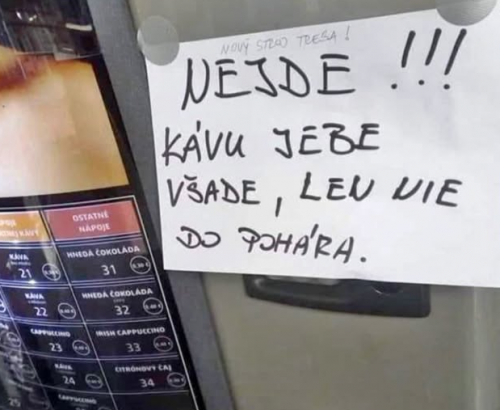 NOVÝ STROJ TREBA!
NEJDE !!!
KÁVU JEBE
VŠADE, LEN NIE
DO POHÁRA.
OSTATNÉ
NÁPOJE
KÁVA
21
HNEDÁ ČOKOLÁDA
31
KÁVA
22
HNEDÁ ČOKOLÁDA
32
CAPPUCCINO
23
IRISH CAPPUCCINO
33
KÁVA
24
CITRÓNOVÝ ČAJ
34
25